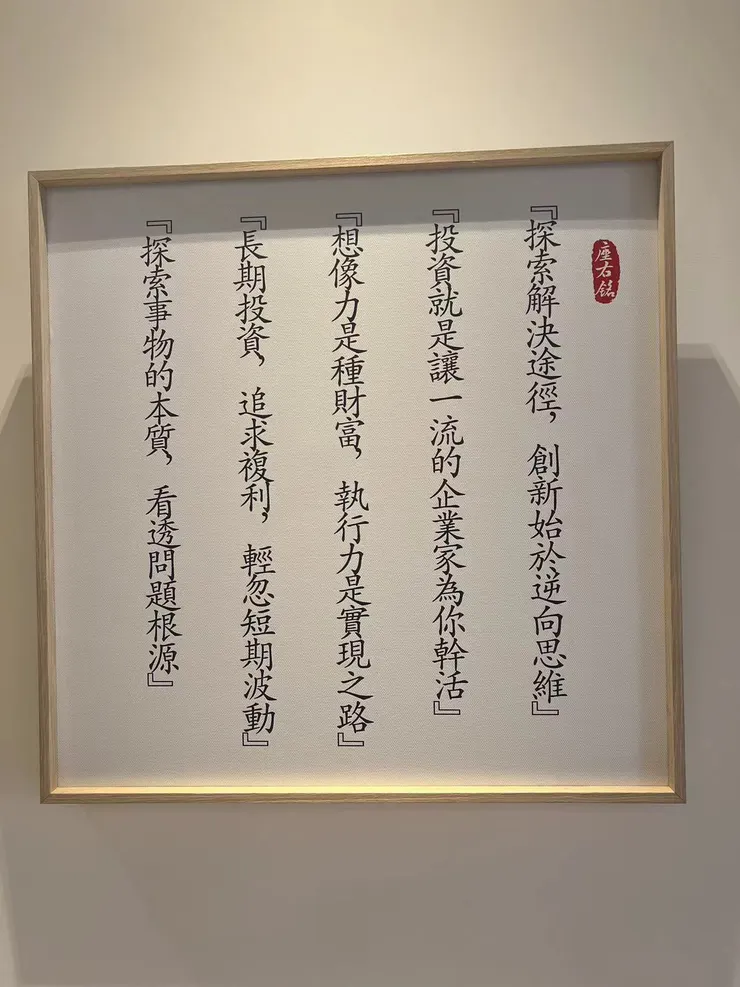 座右銘
『探索解決途徑，創新始於逆向思維』
『投資就是讓一流的企業家為你幹活』
『想像力是種財富，執行力是實現之路』
『長期投資，追求複利，輕忽短期波動』
『探索事物的本質，看透問題根源』